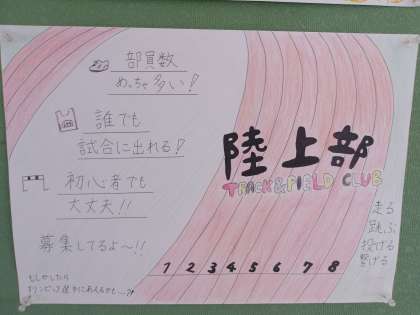 部員数
めっちゃ多い！
誰でも
試合に出れる？
初心者でも
大丈夫!!
募集してるよ〜!!
もしかしたら
オリンピック選手にあえるかも…?!
陸上部
TRACK&FIELD CLUB
走る
跳ぶ
投げる
繋げる
1 2 3 4 5 6 7 8